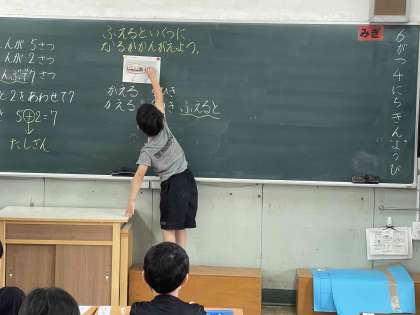 6がつ4にちきんようび
みぎ
ふえるといくつに
なるかかんがえよう。
んが 5さつ
んが 2さつ
んぶで7さつ
と2をあわせて?
5+2=7
たしざん
かえる
かえる き ふえると